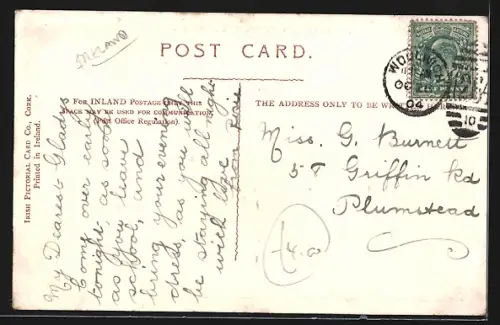 IRELAND
POST CARD.
FOR INLAND POSTAGE ONLY THIS
SPACE MAY BE USED FOR COMMUNICATION
(Post Office Regulation).
THE ADDRESS ONLY TO BE WRITTEN HERE
IRISH PICTORIAL CARD CO., CORK.
Printed in Ireland.
My Dearest Gladys
Come over early
tonight, as soon
as you leave
school, and
bring your evening
dress, as you will
be staying all night
with love
from Rose
Miss. G. Burnett
57 Griffin Rd
Plumstead
WOOLWICH
04
10